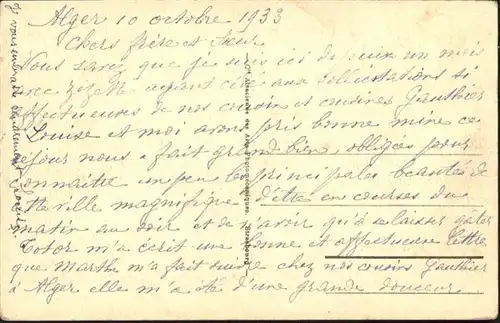 Alger 10 octobre 1933
Chers frère et sœur
Vous savez que je suis ici depuis un mois
avec ayant cédé aux sollicitations si
affectueuses de nos cousin et cousines Gauthier
Louise et moi avons pris bonne mine ce
séjour nous a fait grand bien, obligées pour
connaitre un peu les principales beautés de
cette ville magnifique d'être en courses du
matin au soir et de n'avoir qu'à se laisser gater
Totor m'a écrit une bonne et affectueuse lettre
que Marthe m'a fait suivre chez nos cousins Gauthier
d'Alger elle m'a été d'une grande douceur.
Je vous embrasse